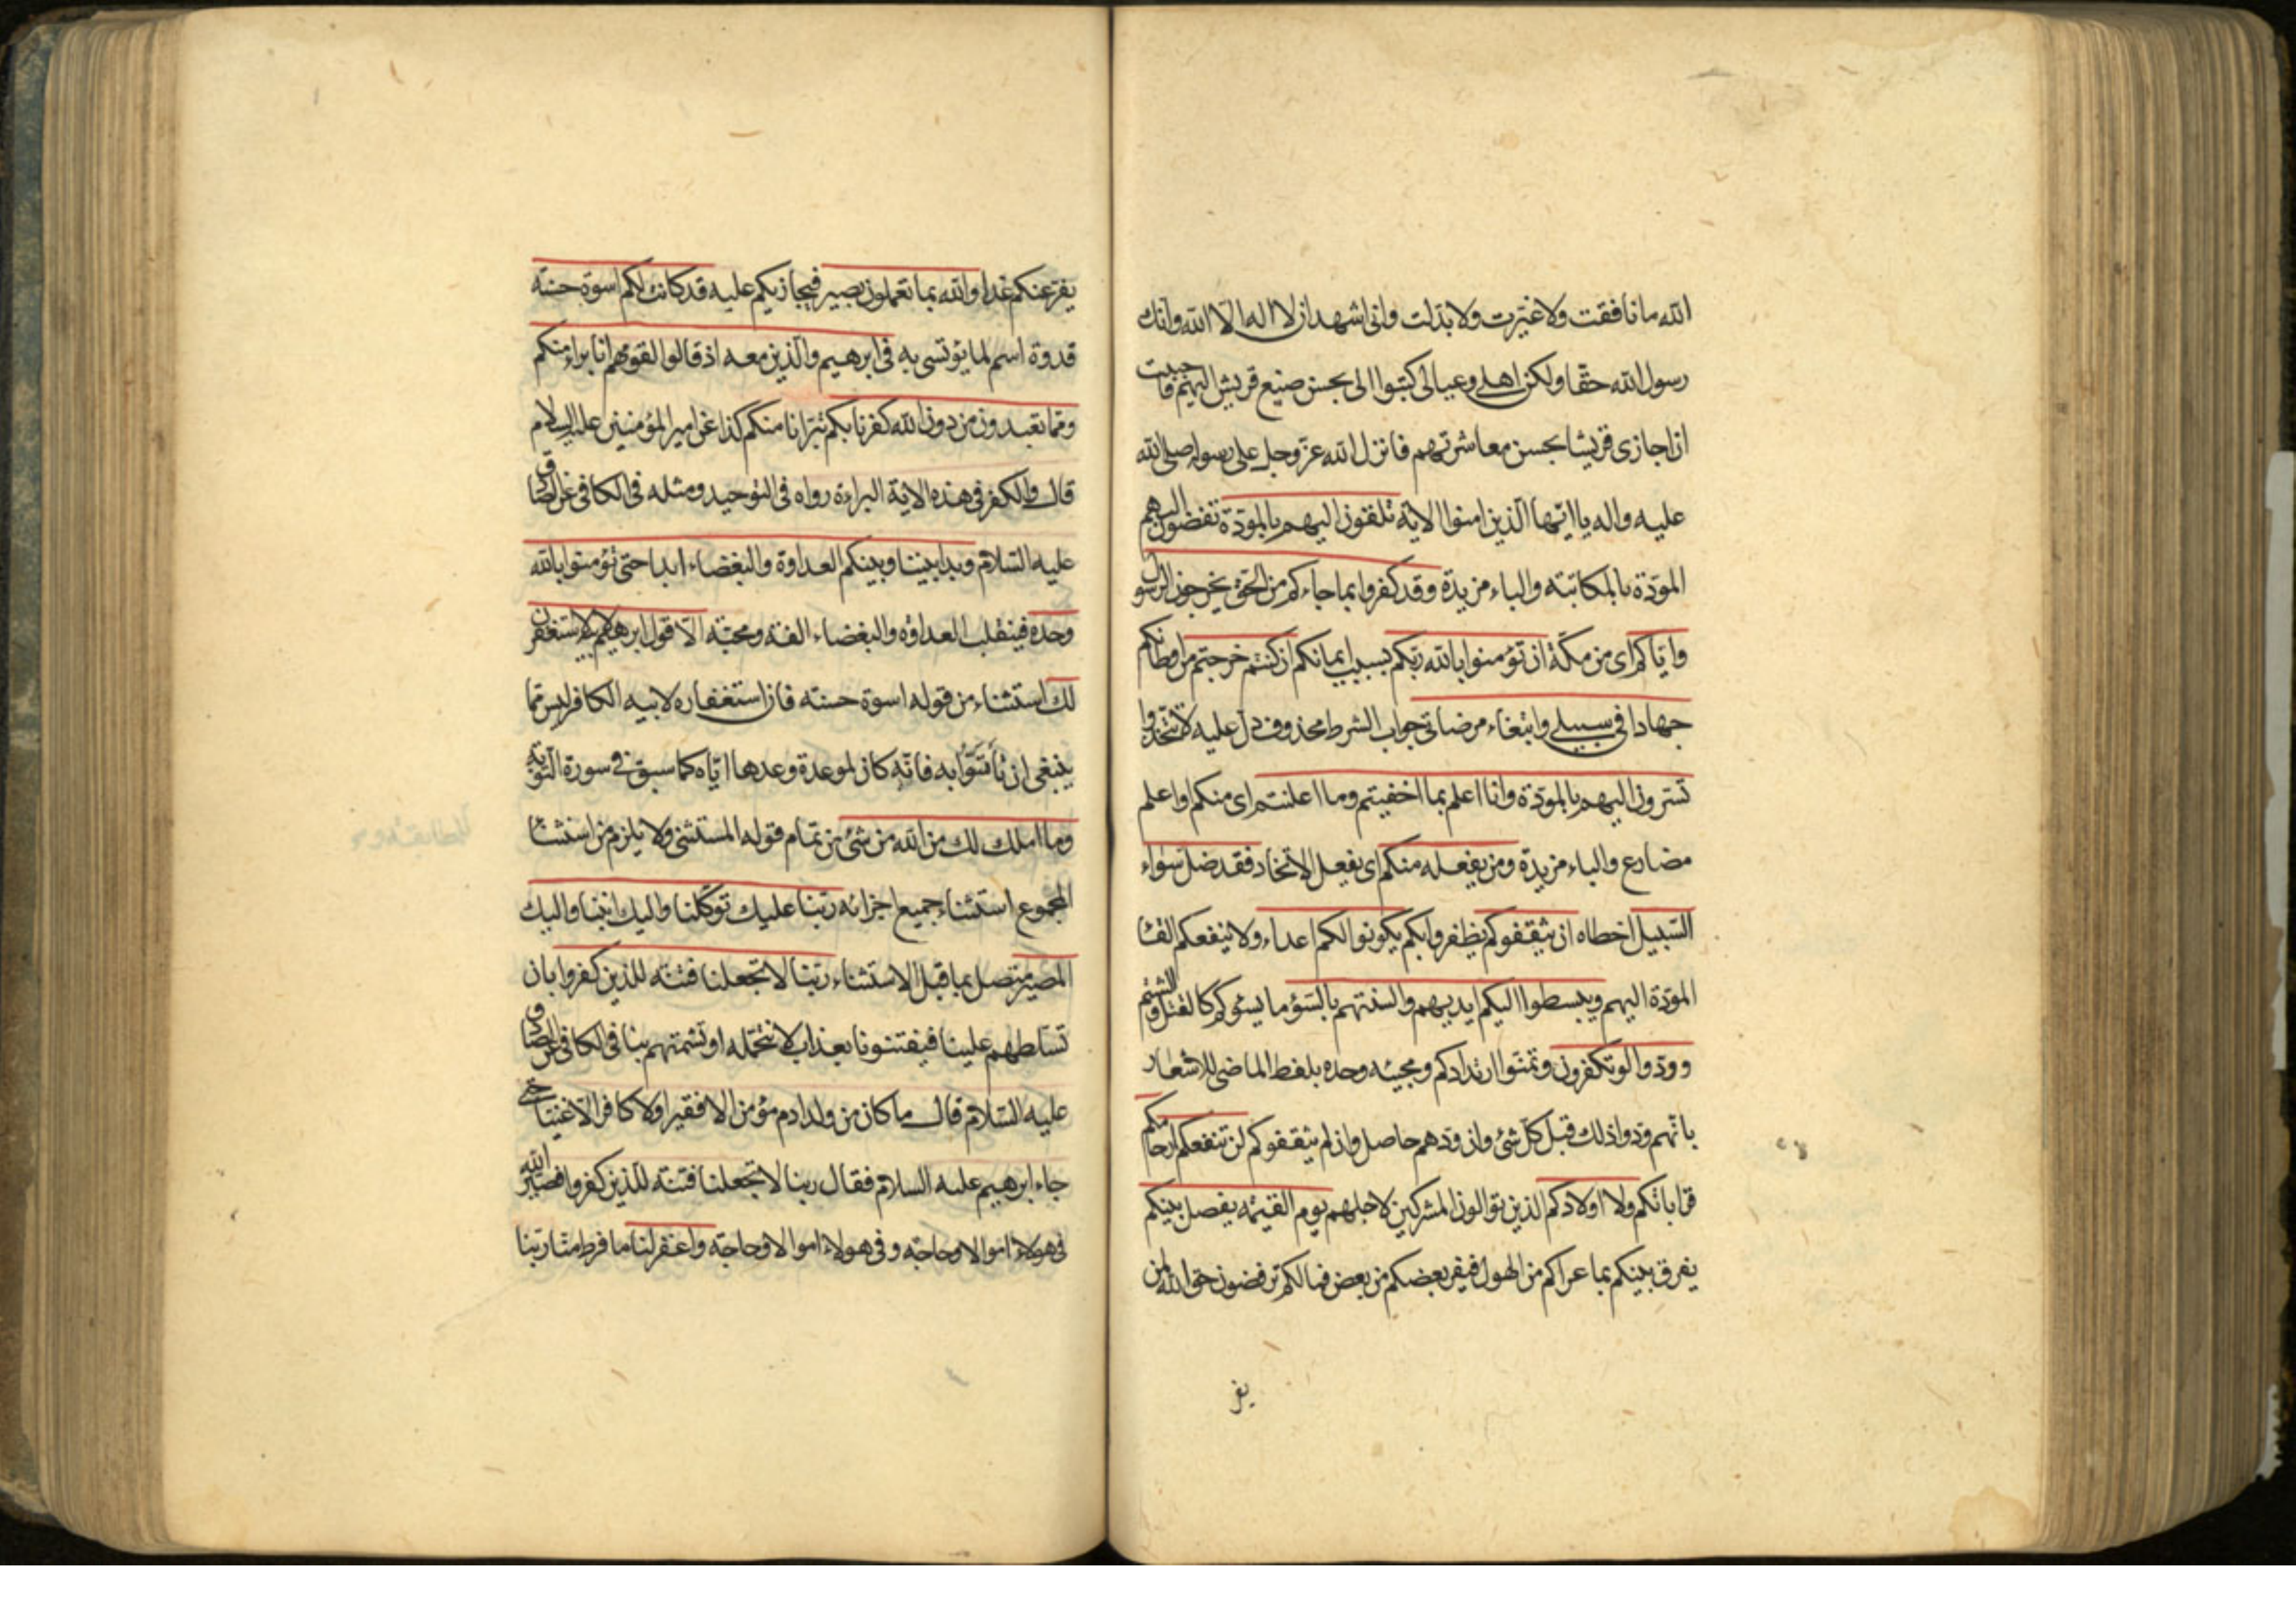 الله ما نافقت ولا غيّرت ولا بدّلت وانى اشهد ان لا اله الّا الله وانك
رسول الله حقّا ولكن اهلى وعيالى كتبوا الى بحسن صنيع قريش اليهم فاحببت
ان اجازى قريشا بحسن معاشرتهم فانزل الله عزّ وجل على رسوله صلى الله
عليه واله يا ايّها الّذين امنوا الاية تلقون اليهم بالمودّة تفضون اليهم
المودّة بالمكاتبة والباء مزيدة وقد كفروا بما جاءكم من الحق يخرجون الرسول
وايّاكم اى من مكّة ان تؤمنوا بالله ربّكم بسبب ايمانكم ان كنتم خرجتم من اوطانكم
جهادا فى سبيلى وابتغاء مرضاتى جواب الشرط محذوف دل عليه لا تتخذوا
تسرّون اليهم بالمودّة وانا اعلم بما اخفيتم وما اعلنتم اى منكم واعلم
مضارع والباء مزيدة ومن يفعله منكم اى يفعل الاتخاذ فقد ضلّ سواء
السّبيل اخطاه ان يثقفوكم يظفروا بكم يكونوا لكم اعداء ولا ينفعكم القاء
المودّة اليهم ويبسطوا اليكم ايديهم والسنتهم بالسّؤ ما يسؤكم كالقتل والشتم
وودّوا لو تكفرون وتمنّوا ارتدادكم ومجيئه وحده بلفظ الماضى للاشعار
بانّهم ودّوا ذلك قبل كلّ شئ وان ودّهم حاصل وان لم يثقفوكم لن تنفعكم ارحامكم
قراباتكم ولا اولادكم الذين توالون المشركين لاجلهم يوم القيمة يفصل بينكم
يفرق بينكم بما عراكم من الهول فيفر بعضكم من بعض فما لكم ترفضون حق الله لمن
يفر
يفرّ عنكم غدا والله بما تعملون بصير فيجازيكم عليه قد كانت لكم اسوة حسنة
قدوة اسم لما يؤتسى به فى ابرهيم والّذين معه اذ قالوا لقومهم انا براء منكم
وممّا تعبدون من دون الله كفرنا بكم تبرّانا منكم كذا عن امير المؤمنين عليه السلام
قال والكفر فى هذه الاية البراءة رواه فى التوحيد ومثله فى الكافى عن الصادق
عليه السّلام وبدا بيننا وبينكم العداوة والبغضاء ابدا حتى تؤمنوا بالله
وحده فينقلب العداوة والبغضاء الفة ومحبّة الّا قول ابرهيم لابيه لاستغفرنّ
لك استثناء من قوله اسوة حسنة فان استغفاره لابيه الكافر ليس ممّا
ينبغى ان تأتسوا به فانّه كان لموعدة وعدها ايّاه كما سبق فى سورة التوبة
وما املك لك من الله من شئ من تمام قوله المستثنى ولا يلزم من استثناء
المجموع استثناء جميع اجزائه ربّنا عليك توكّلنا واليك انبنا واليك
المصير متصل بما قبل الاستثناء ربّنا لا تجعلنا فتنة للذين كفروا بان
تسلطهم علينا فيفتنونا بعذاب لا نتحمّله او تشمتهم بنا فى الكافى عن الصادق
عليه السّلام قال ما كان من ولد ادم مؤمن الا فقيرا ولا كافر الّا غنيّا حتى
جاء ابرهيم عليه السلام فقال ربنا لا تجعلنا فتنة للّذين كفروا فصيّر الله
فى هولاء اموالا وحاجة وفى هولاء اموالا وحاجة واغفر لنا ما فرط منّا ربّنا